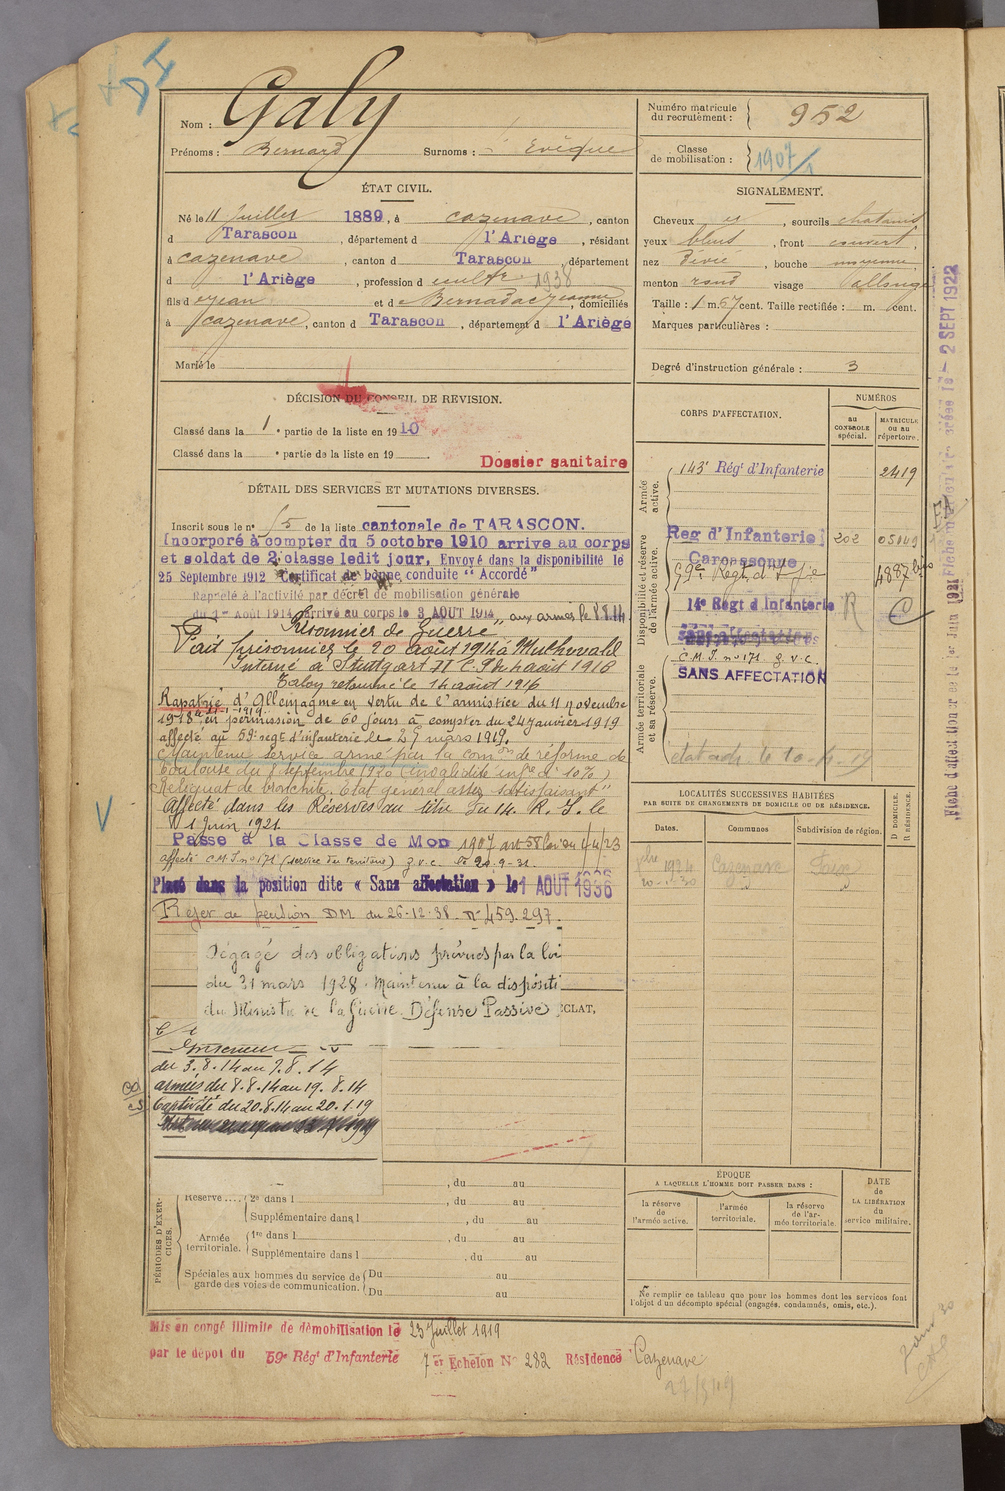 DI
Nom : Galy
Prénoms : Bernard Surnoms : Evêque
Numéro matricule du recrutement : 952
Classe de mobilisation : 1907
ÉTAT CIVIL.
Né le 11 Juillet 1889, à Cazenave, canton
d Tarascon, département d l'Ariège, résidant
à Cazenave, canton d Tarascon département
d l'Ariège, profession d cultr 1938
fils d Jean et d Bernadac Jeanne, domiciliés
à Cazenave, canton d Tarascon, département d l'Ariège
Marié le
SIGNALEMENT.
Cheveux et, sourcils chatains
yeux bleus, front couvert,
nez dévié, bouche moyenne,
menton rond visage allongé
Taille : 1 m. 67 cent. Taille rectifiée : m. cent.
Marques particulières :
Degré d'instruction générale : 3
DÉCISION DU CONSEIL DE REVISION.
Classé dans la 1e partie de la liste en 1910
Classé dans la e partie de la liste en 19
Dossier sanitaire
DÉTAIL DES SERVICES ET MUTATIONS DIVERSES.
Inscrit sous le n° 15 de la liste cantonale de TARASCON.
Incorporé à compter du 5 octobre 1910 arrive au corps
et soldat de 2e classe ledit jour. Envoyé dans la disponibilité le
25 Septembre 1912 Certificat de bonne conduite "Accordé"
Rappelé à l'activité par décret de mobilisation générale
du 1er Août 1914 arrivé au corps le 3 AOUT 1914 aux armées le 8.8.14
Prisonnier de Guerre
Fait prisonnier le 20 août 1914 à
Interné à Stuttgart II
août 1916
Rapatrié d'Allemagne en vertu de l'armistice du 11 novembre
1918 en permission de 60 jours à compter du 24 Janvier 1919
affecté au 59e regt d'infanterie le 29 mars 1919.
Maintenu service armé par la comon de réforme de
Toulouse du 8 septembre 1920 (invalidité infre à 10%)
Reliquat de bronchite. Etat général assez satisfaisant"
Affecté dans les Réserves au titre du 14. R. I. le
1 Juin 1921
Passé à la Classe de Mob 1907 art 58 loi du 1/4/23
affecté C.M.I. n° 171 (service du territoire) g.v.c. le 20.9.31.
Placé dans la position dite « Sans affectation » le 1 AOUT 1936
Rejet de pension DM du 26.12.38. N° 459.297.
Dégagé des obligations prévues par la loi
du 31 mars 1928. Maintenu à la dispositi
du Ministre de la Guerre. Défense Passive
ÉCLAT.
Intérieur
du 3.8.14 au 7.8.14
armées du 8.8.14 au 19.8.14
Captivité du 20.8.14 au 20.1.19
CORPS D'AFFECTATION.
NUMÉROS
au CONTROLE spécial.
MATRICULE ou au répertoire.
Armée active.
143e Régt d'Infanterie 2419
Disponibilité et réserve de l'armée active.
Reg d'Infanterie 202 05049
Carcassonne
59e Regt d'Infie 4887 bis
14e Régt d'Infanterie R C
Armée territoriale et sa réserve.
C.M.I. n° 171 g.v.c.
SANS AFFECTATION
Fiche d'affectation
2 SEPT 1922
LOCALITÉS SUCCESSIVES HABITÉES
PAR SUITE DE CHANGEMENTS DE DOMICILE OU DE RÉSIDENCE.
Dates. Communes Subdivision de région. D DOMICILE. R RÉSIDENCE.
1924 Cazenave Foix
PÉRIODES D'EXERCICES.
, du au
Réserve.... 2e dans l , du au
Supplémentaire dans l , du au
Armée territoriale. 1re dans l , du au
Supplémentaire dans l , du au
Spéciales aux hommes du service de garde des voies de communication. Du au
Du au
ÉPOQUE
A LAQUELLE L'HOMME DOIT PASSER DANS :
la réserve de l'armée active.
l'armée territoriale.
la réserve de l'armée territoriale.
DATE de LA LIBÉRATION du service militaire.
Ne remplir ce tableau que pour les hommes dont les services font
l'objet d'un décompte spécial (engagés, condamnés, omis, etc.).
Mis en congé illimité de démobilisation le 23 Juillet 1919
par le dépôt du 59e Régt d'Infanterie 7er Echelon N° 282 Résidence Cazenave